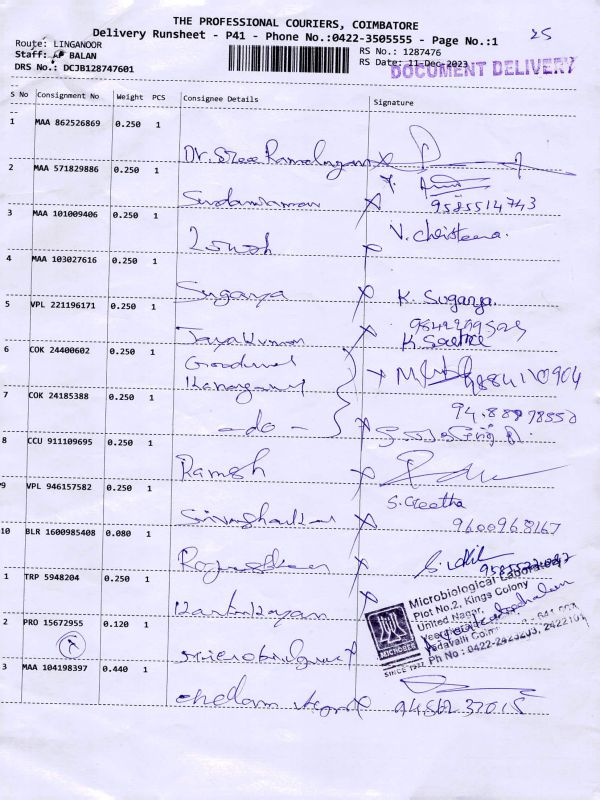 THE PROFESSIONAL COURIERS, COIMBATORE
Delivery Runsheet - P41 - Phone No.:0422-3505555 - Page No.:1
25
Route: LINGANOOR
Staff: BALAN
DRS No.: DCJB128747601
RS No.: 1287476
RS Date: 11-Dec-2023
DOCUMENT DELIVERY
S No Consignment No Weight PCS Consignee Details Signature
1 MAA 862526869 0.250 1
Dr. Sree Ramalingam x
2 MAA 571829886 0.250 1
x 9585514743
3 MAA 101009406 0.250 1
x V. Christeena.
4 MAA 103027616 0.250 1
Suganya x K. Suganya.
5 VPL 221196171 0.250 1
Jayakumar x
6 COK 24400602 0.250 1
x 9884110904
7 COK 24185388 0.250 1
- do - x
8 CCU 911109695 0.250 1
Ramesh x
9 VPL 946157582 0.250 1
S. Geetha
Sivashankar x 9600968167
10 BLR 1600985408 0.080 1
x
1 TRP 5948204 0.250 1
Karthikeyan x
2 PRO 15672955 0.120 1
x
Microbiological Laboratory
Plot No.2, Kings Colony
United Nagar,
MICROBES
SINCE 1972
Ph No : 0422-2423203,
3 MAA 104198397 0.440 1
x